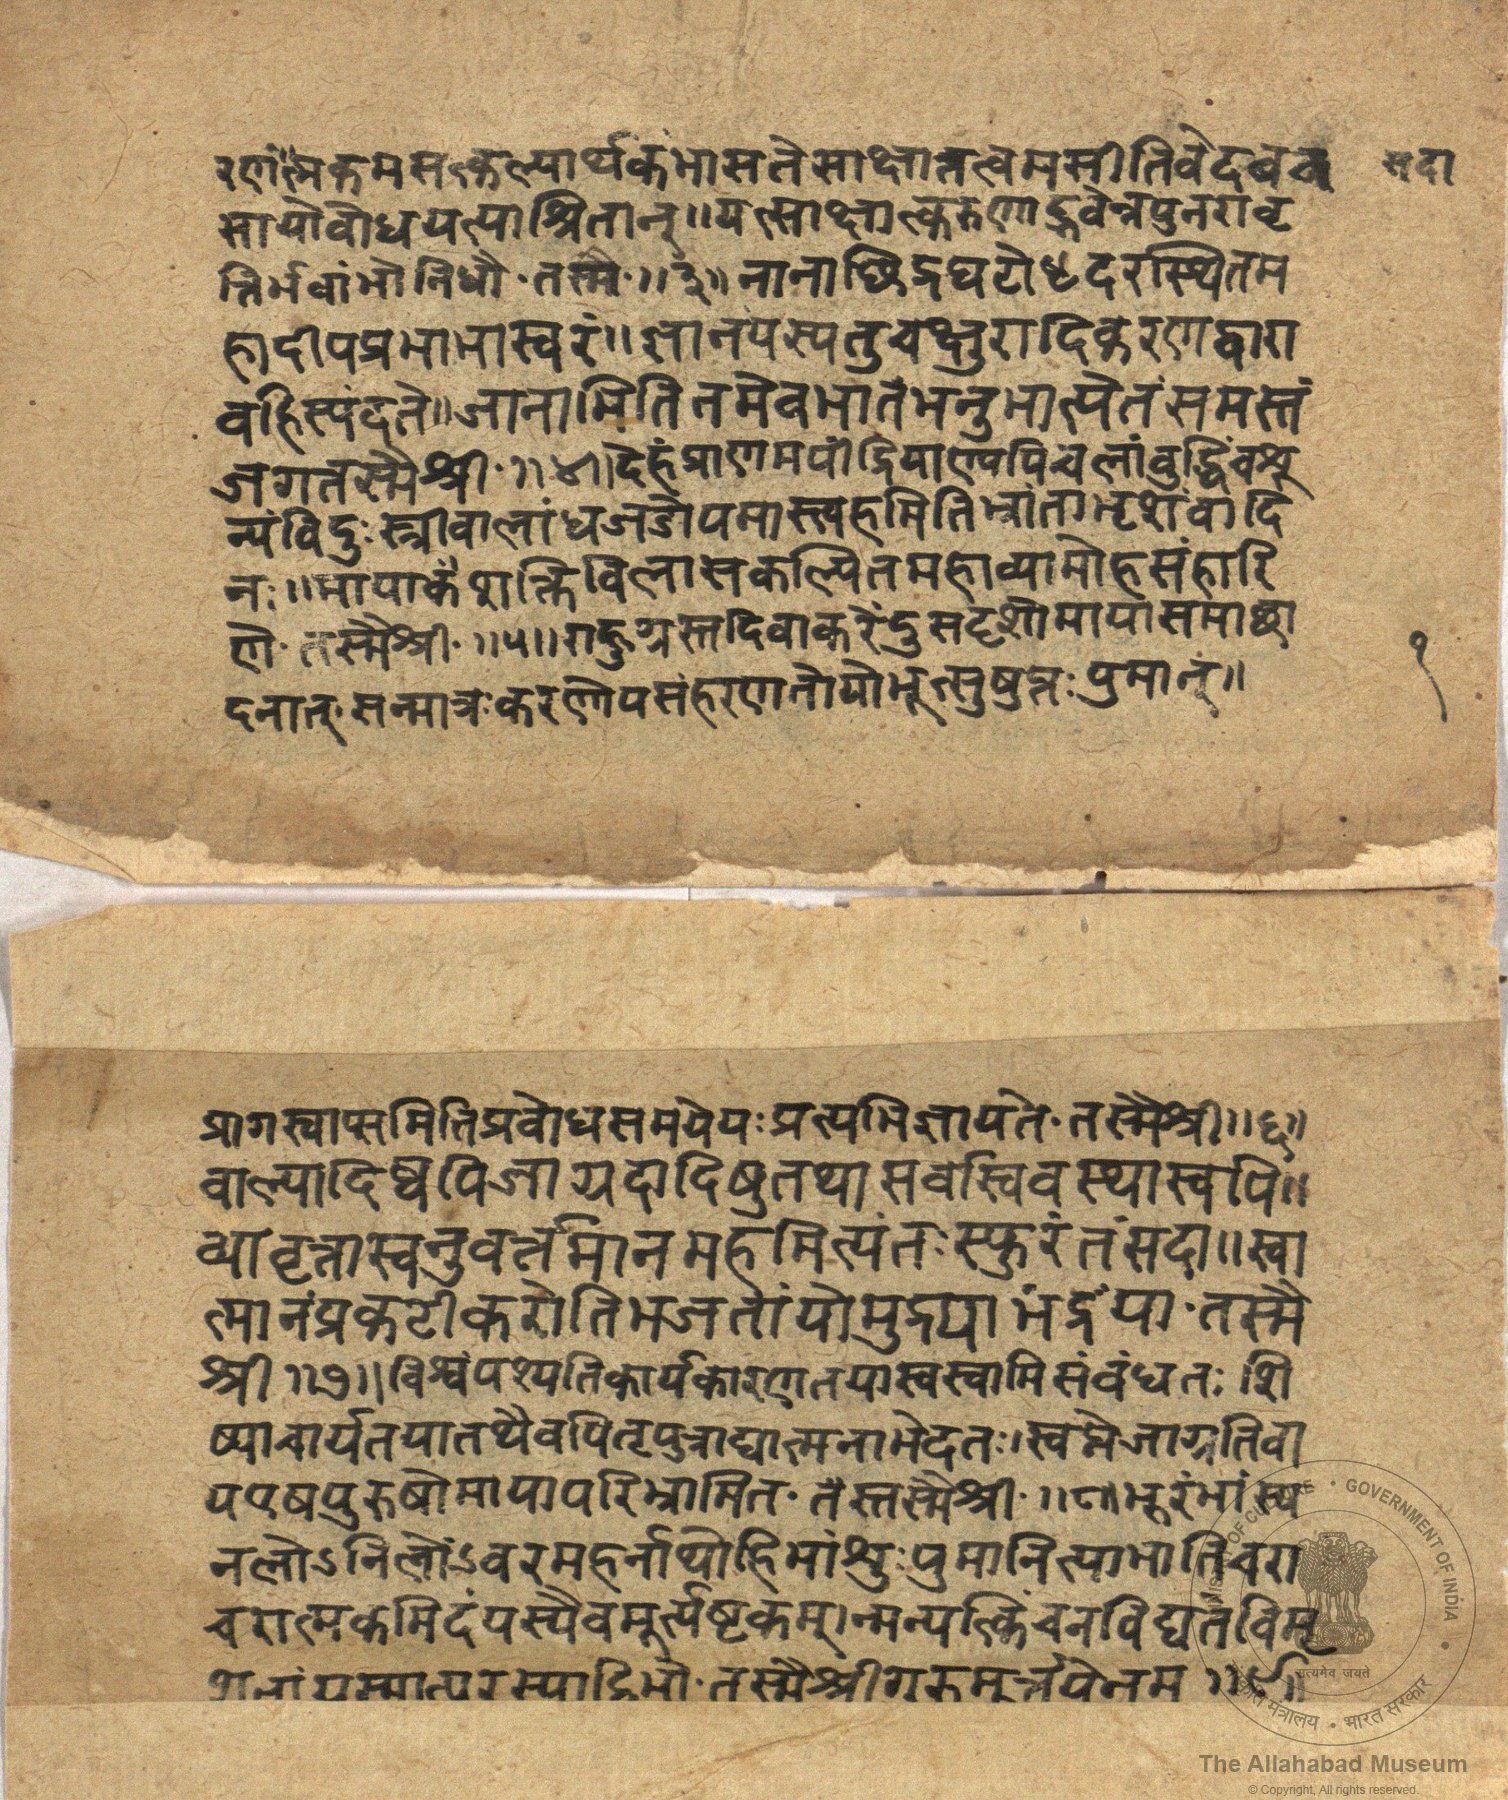 रणंत्मकमसत्कल्पार्थकंभासतेसाक्षातत्वमसीतिवेदवच सदा
सायोवोधयत्याश्रितान्॥यत्साक्षात्करणाद्भवेन्नपुनरावृ
त्तिर्भवांभोनिधौ॰तस्मै॰॥३॥नानाछिद्रघटोधदरस्थितम
हादीपप्रभाभास्वरं॥ज्ञानंयस्यतुचक्षुरादिकरणद्वारा
वहिस्पंदते॥जानामितितमेवभातंमनुभात्येतंसमस्तं
जगतस्मैश्री॰॥४॥देहंप्राणमपींद्रियाण्यपिचलांवुद्धिंचशू
न्यंविदुःस्त्रीवालांधजडोपमास्त्वहमितिभ्रांताभृशंवादि
नः॥मायाकैशक्तिविलासकल्पितमहाव्यामोहसंहारि
णे॰तस्मैश्री॰॥५॥राहुग्रस्तदिवाकरेंदुसदृशोमायासमाछा
दनात्॰सन्मात्रःकरणोपसंहरणतोयोभूत्सुषुप्तःपुमान्॥
१
प्रागस्वाप्समितिप्रवोधसमयेयःप्रत्यभिज्ञायते॰तस्मैश्री॥६॥
वाल्यादिष्वपिजाग्रदादिषुतथासर्वास्विवस्थास्वपि॥
व्यावृत्तास्वनुवर्त्तमानमहमित्यंतःस्फुरंतंसदा॥स्वा
त्मानंप्रकटीकरोतिभजतांयोमुद्रयाभंद्रया॰तस्मै
श्री॥७॥विश्वंपश्यतिकार्यकारणतयास्वस्वामिसंवंधतःशि
ष्याचार्यतयातथैवपितृपुत्राद्यात्मनाभेदतः॥स्वप्नेजाग्रतिवा
यएषपुरुषोमायापरिभ्रामित॰तैस्तस्मैश्री॰॥८॥भूरंभांस्य
नलोऽनिलोंऽवरमहर्नाथोहिमांशुःपुमानित्याभातिचरा
चरात्मकमिदंयस्यैवमूर्त्यष्टकम्।न्मन्यत्किंचनविद्यतेविमृ
शतांयस्मात्परस्याद्विभो॰तस्मैश्रीगुरुमूर्त्तयेनम॥९॥
MINISTRY OF CULTURE • GOVERNMENT OF INDIA
सत्यमेव जयते
संस्कृति मंत्रालय • भारत सरकार
The Allahabad Museum
© Copyright, All rights reserved.